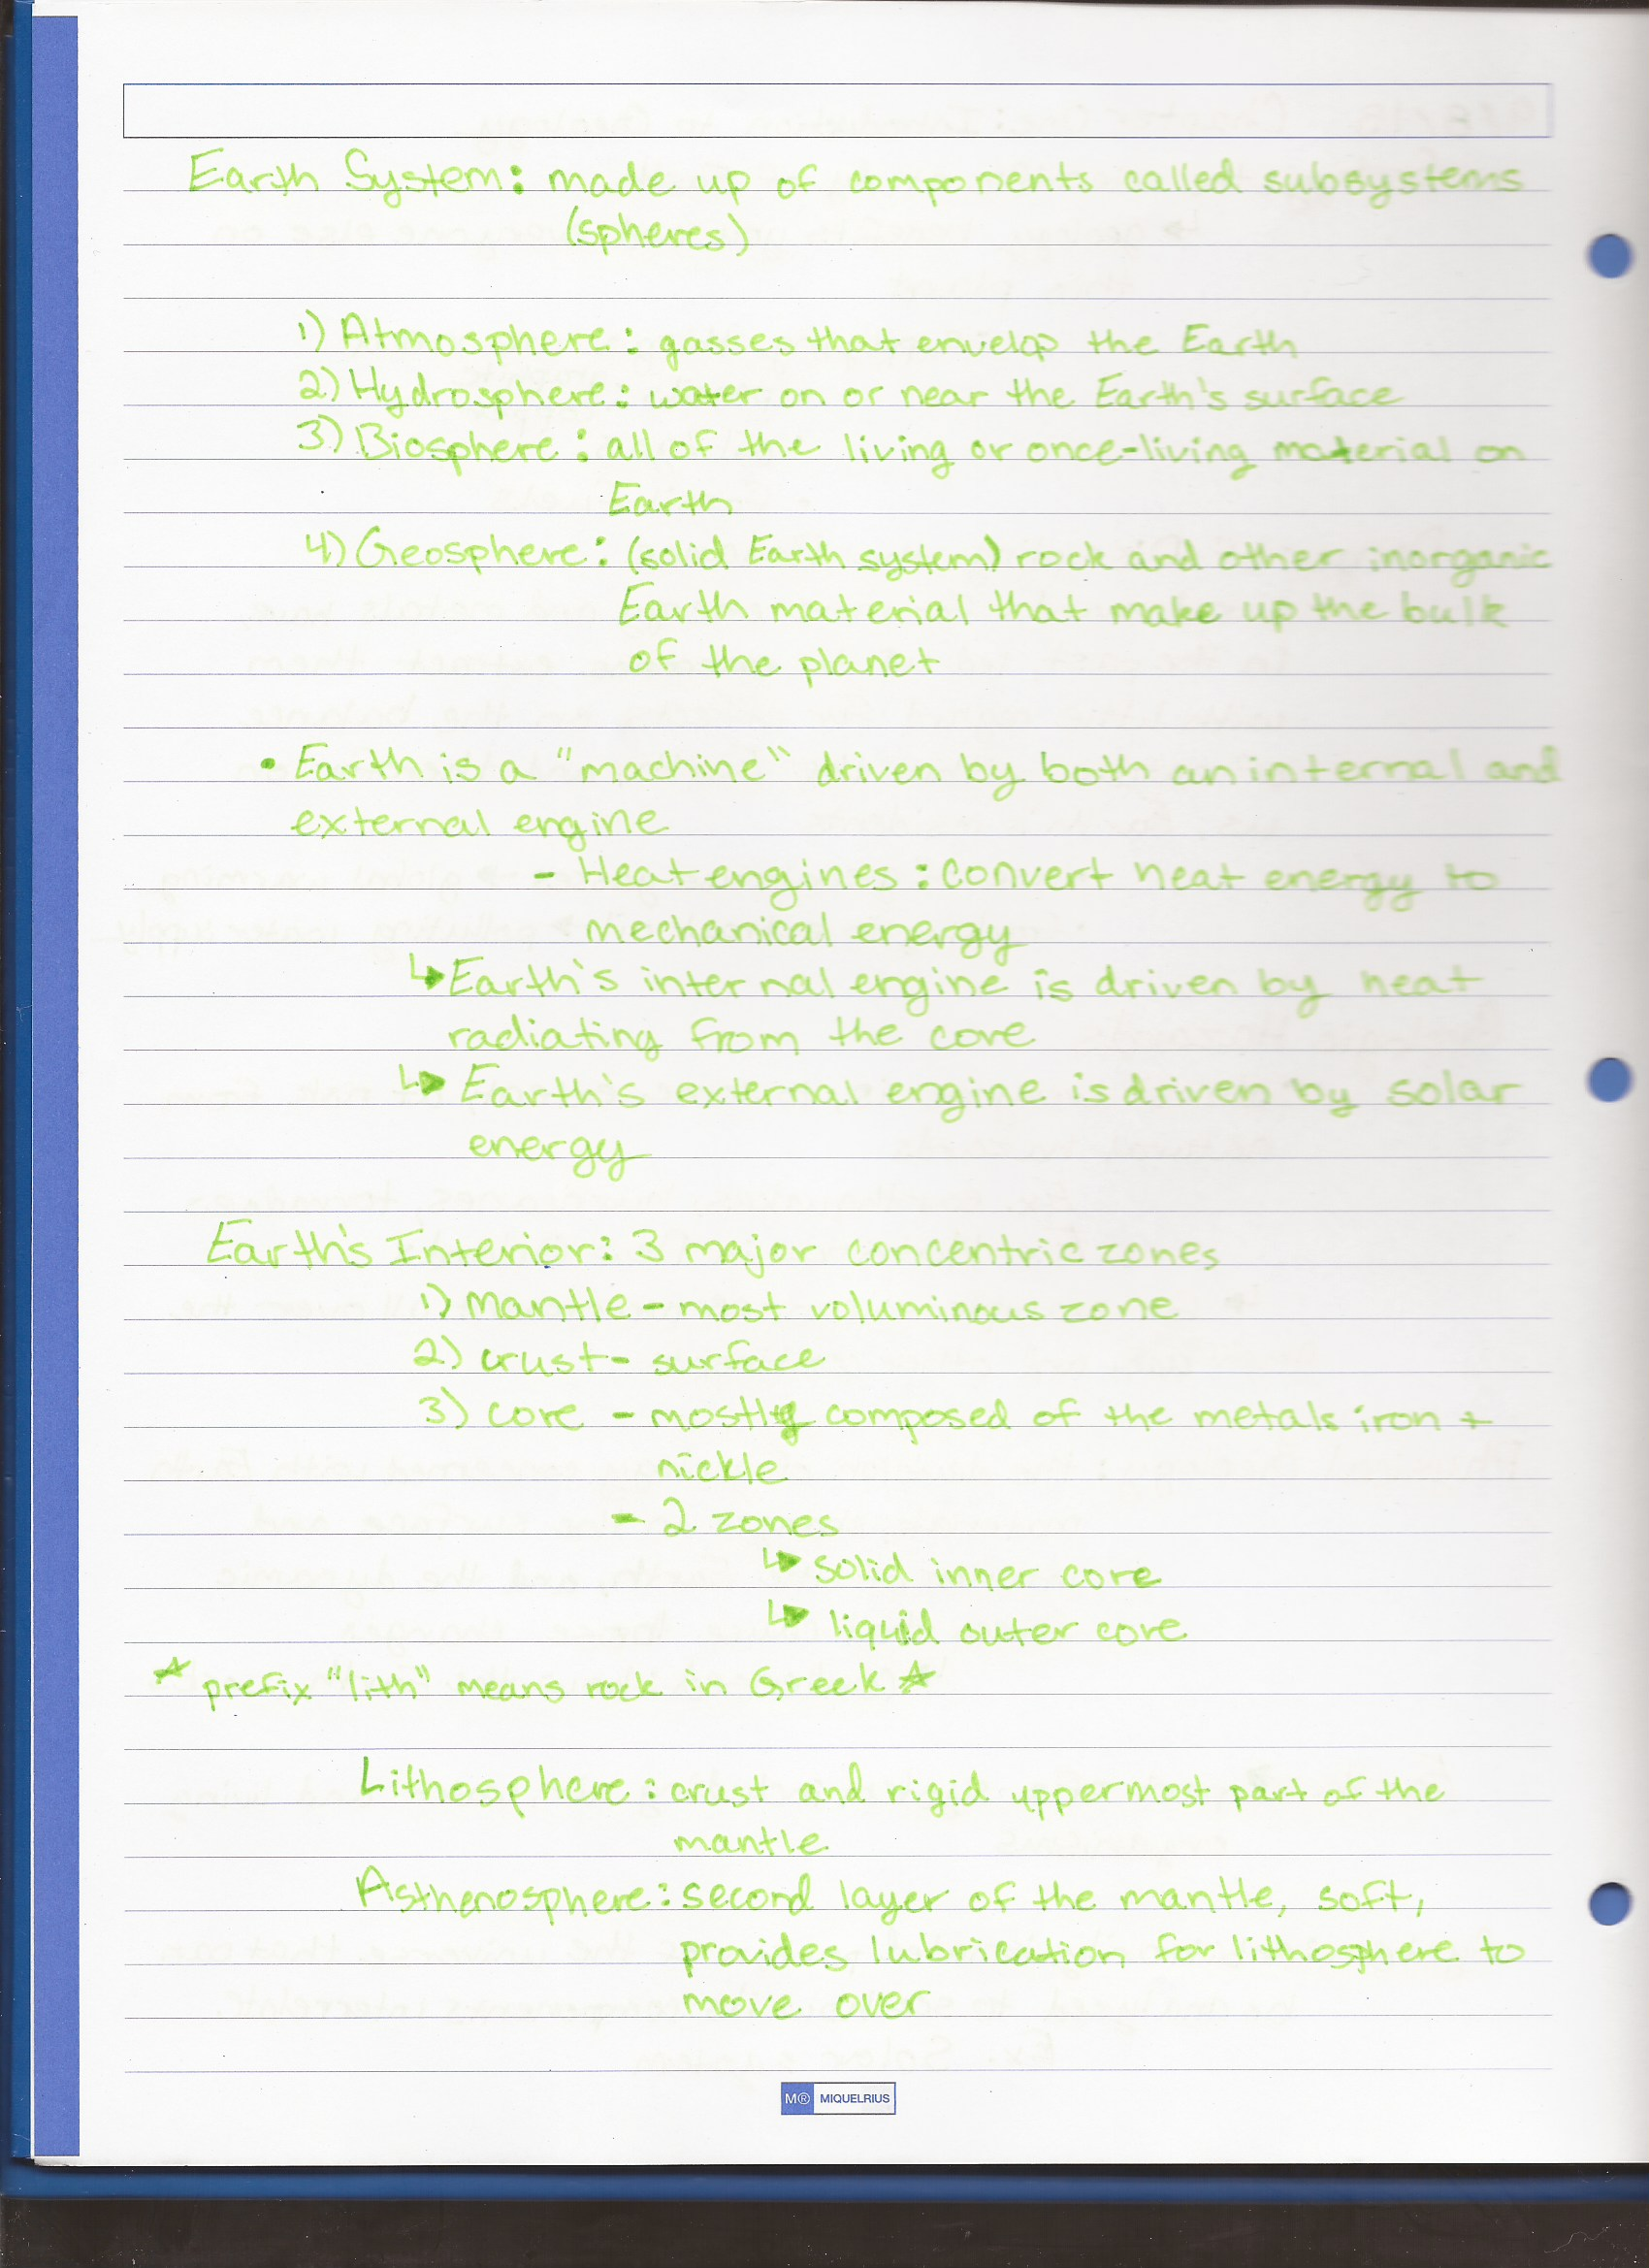 Earth System: made up of components called subsystems
(spheres)
1) Atmosphere: gasses that envelop the Earth
2) Hydrosphere: water on or near the Earth's surface
3) Biosphere: all of the living or once-living material on
Earth
4) Geosphere: (solid Earth system) rock and other inorganic
Earth material that make up the bulk
of the planet
• Earth is a "machine" driven by both an internal and
external engine
- Heat engines: convert heat energy to
mechanical energy
↳ Earth's internal engine is driven by heat
radiating from the core
↳ Earth's external engine is driven by solar
energy
Earth's Interior: 3 major concentric zones
1) mantle - most voluminous zone
2) crust - surface
3) core - mostly composed of the metals iron +
nickle
- 2 zones
↳ solid inner core
↳ liquid outer core
☆ prefix "lith" means rock in Greek ☆
Lithosphere: crust and rigid uppermost part of the
mantle
Asthenosphere: second layer of the mantle, soft,
provides lubrication for lithosphere to
move over
M® MIQUELRIUS